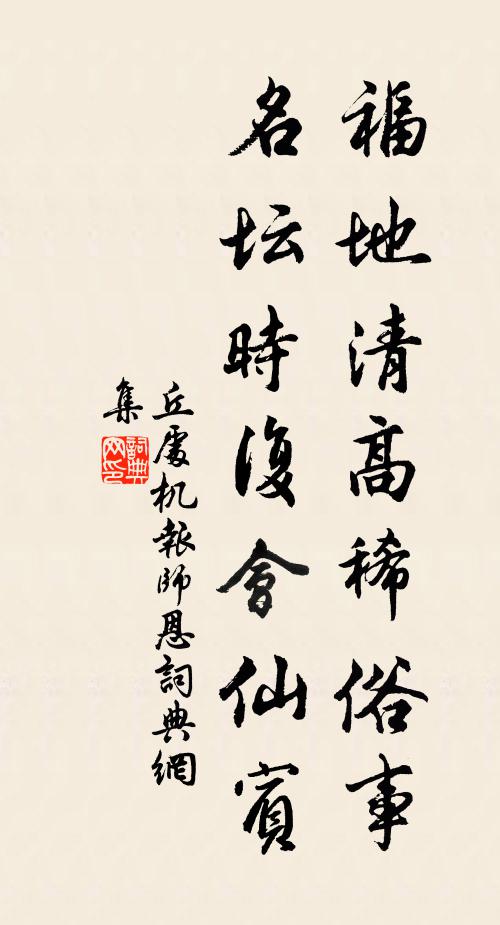 福地清高稀俗事
名坛時復會仙賓
丘處机報師恩詞典網
集
詞典
网印